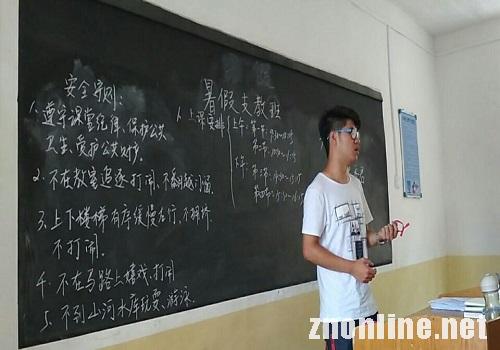 安全守则：
1、遵守课堂纪律、保护公共
卫生、爱护公共财物。
2、不在教室追逐打闹、不翻越门窗
3、上下楼梯有序缓慢右行、不拥挤
不打闹。
4、不在马路上嬉戏、打闹
5、不到山河水库玩耍、游泳。
暑假支教班
1、上课安排
上午：第一节：
第二节：
下午：第一节：
第二节：
znonline.net